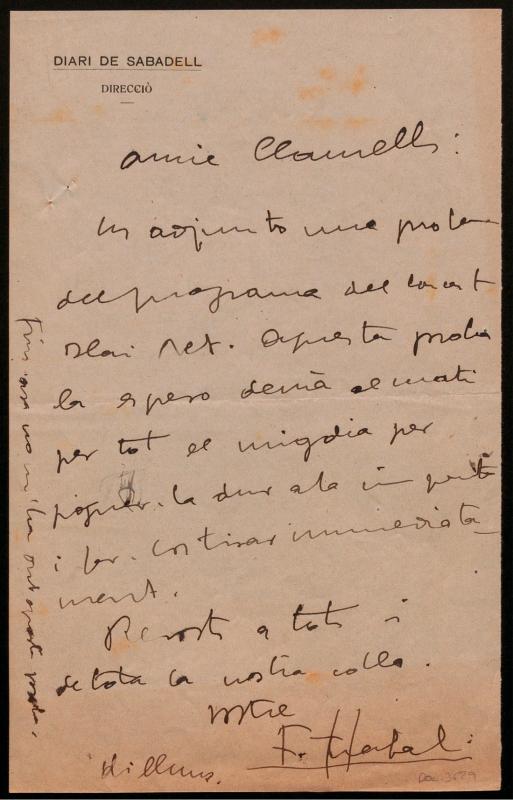 DIARI DE SABADELL
DIRECCIÓ
Amic Clamells:
Us adjunto una prova
del programa del concert
Blai Net. Aquesta prova
la espero demà al matí
per tot el migdia per
poguer-la dur a la impremta
i fer-los tirar immediata
ment.
Records a tots i
de tota la nostra colla.
Vostre
F. Trabal
Dilluns.
Fins ara no m'han dut aquesta prova.
DOC. 3679